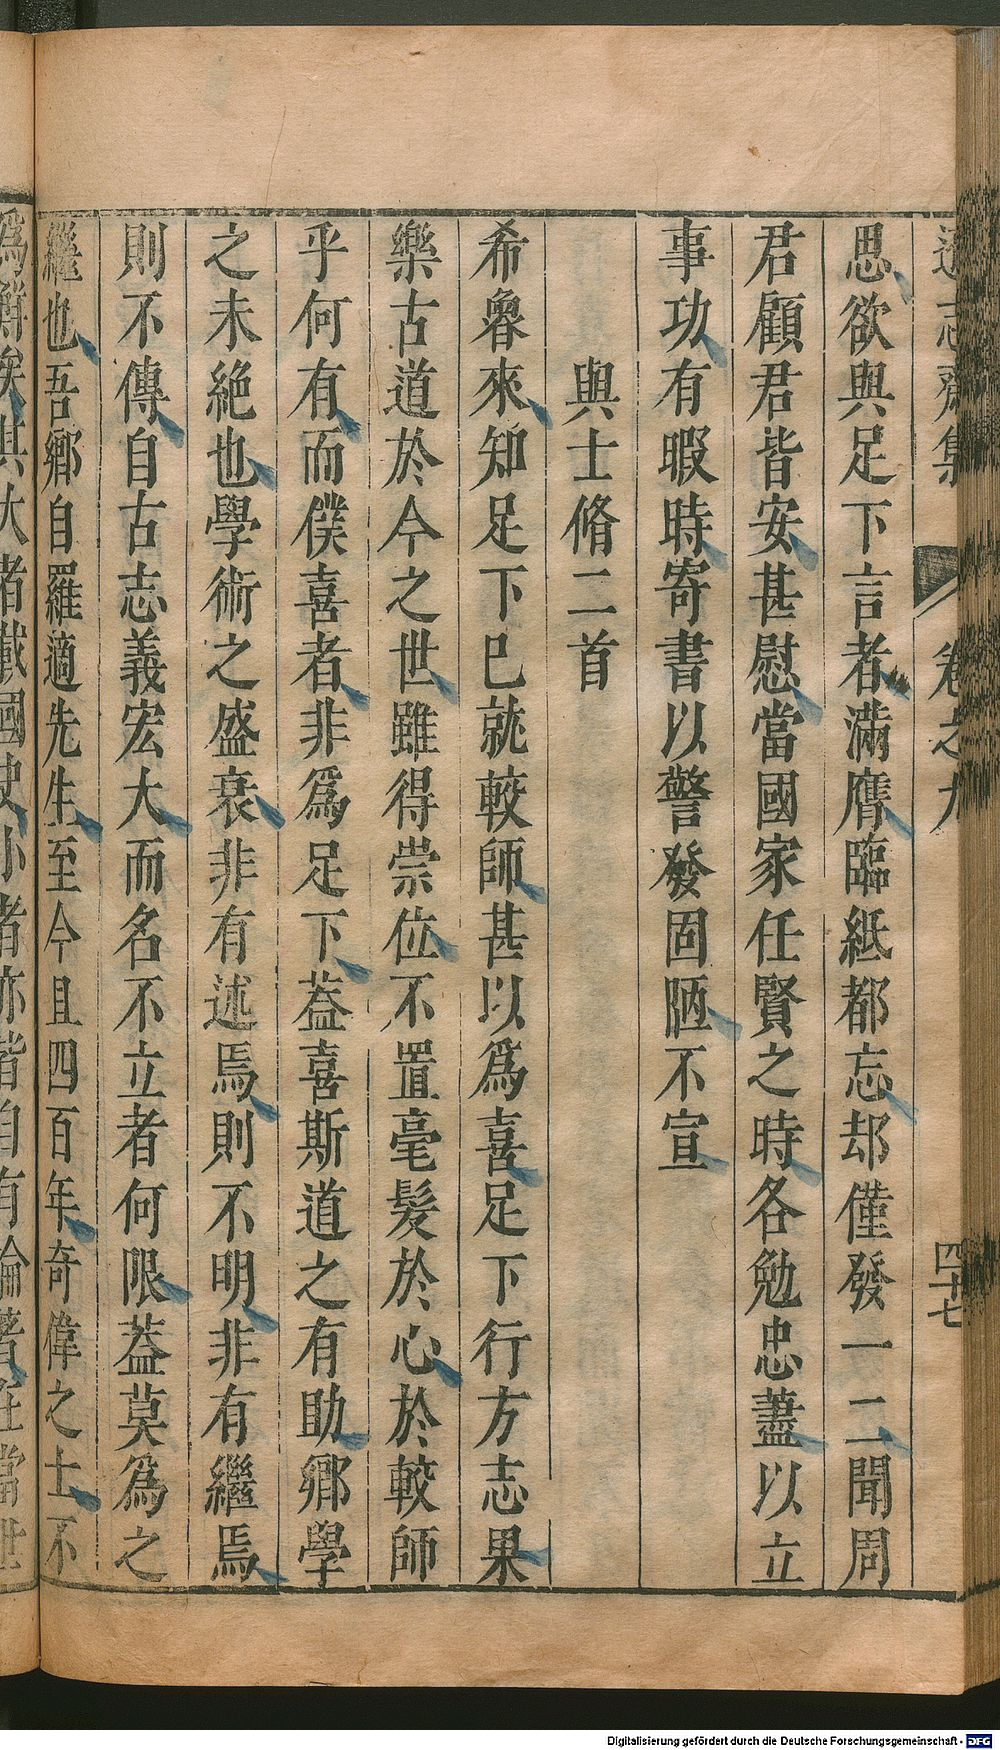 遜志齋集 卷之九 四十七
思欲與足下言者滿膺臨紙都忘却僅發一二聞周
君顧君皆安甚慰當國家任賢之時各勉忠藎以立
事功有暇時寄書以警發固陋不宣
與士脩二首
希魯來知足下已就較師甚以爲喜足下行方志果
樂古道於今之世雖得崇位不置毫髮於心於較師
乎何有而僕喜者非爲足下葢喜斯道之有助鄉學
之未絶也學術之盛衰非有述焉則不明非有繼焉
則不傳自古志義宏大而名不立者何限葢莫爲之
繼也吾鄉自羅適先生至今且四百年奇偉之士不
爲尠矣其大者載國史小者亦皆自有論著在當世
Digitalisierung gefördert durch die Deutsche Forschungsgemeinschaft - DFG